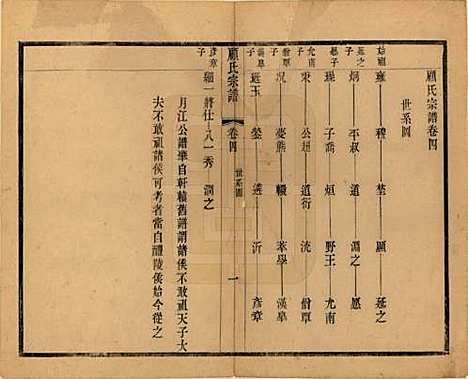 顧氏宗譜卷四
世系圖
始祖 雍 穆 埜 顯 延之
延之子 炯 平叔 道 淵之 愿
愿子 琨 子喬 烜 野王 允南
允南子 秉 公垣 道衍 流 僧覃
僧覃子 況 夢熊 轍 萃學 漢阜
漢皋子 延玉 鋆 遴 沂 彥章
顧氏宗譜 卷四 世系圖 一
彥章子 細一將仕 八一秀 潤之
月江公譜肇自軒轅舊譜謂諸侯不敢祖天子大
夫不敢祖諸侯可考者當自醴陵侯始今從之